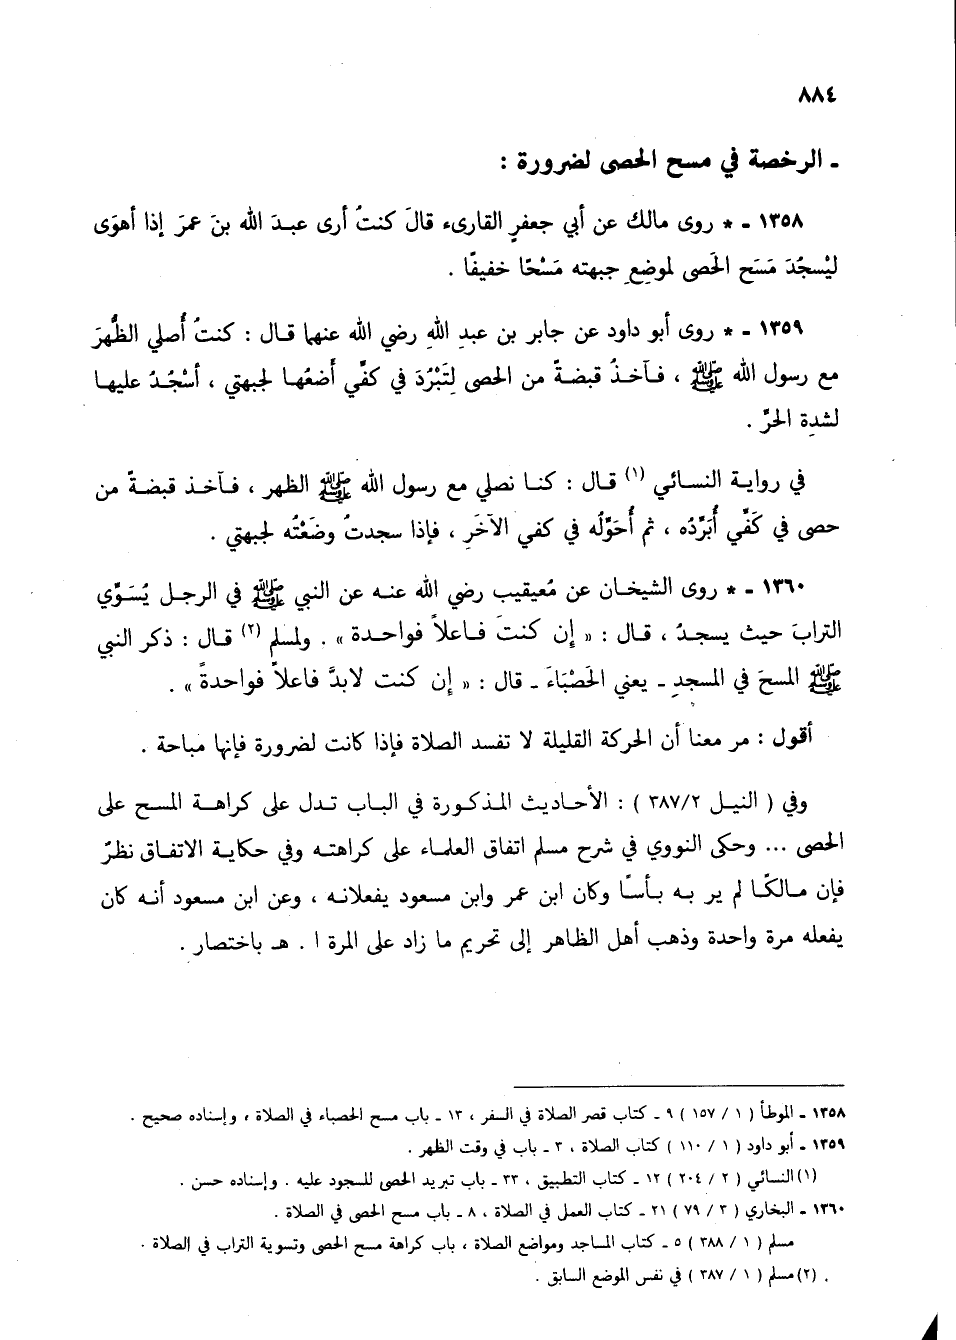 ٨٨٤
ـ الرخصة في مسح الحصى لضرورة :
١٣٥٨ ـ * روى مالك عن أبي جعفرٍ القارىء قالَ كنتُ أرى عبدَ الله بنَ عمرَ إذا أهوَى
ليْسجُدَ مَسَح الحَصى لموضِعِ جبهته مَسْحًا خفيفًا .
١٣٥٩ ـ * روى أبو داود عن جابر بن عبدِ اللهِ رضي الله عنهما قال : كنتُ أُصلي الظُّهرَ
مع رسول الله ﷺ ، فآخذُ قبضةً من الحصى لِتَبْرُدَ في كفِّي أَضعُها لجبهتي ، أسْجُدُ عليها
لشدةِ الحرِّ .
في رواية النسائي (١) قال : كنا نصلي مع رسول الله ﷺ الظهر ، فآخذ قبضةً من
حصى في كَفِّي أُبَرِّدُه ، ثم أُحَوِّلُه في كفي الآخَرِ ، فإذا سجدتُ وضَعْتُه لجبهتي .
١٣٦٠ ـ * روى الشيخان عن مُعيقيب رضي الله عنه عن النبي ﷺ في الرجل يُسَوِّي
الترابَ حيث يسجدُ ، قال : « إن كنتَ فاعلاً فواحدة » . ولمسلم (٢) قال : ذكر النبي
ﷺ المسحَ في المسجدِ ـ يعني الحَصْبَاءَ ـ قال : « إن كنت لابدَّ فاعلاً فواحدةً » .
أقول : مر معنا أن الحركة القليلة لا تفسد الصلاة فإذا كانت لضرورة فإنها مباحة .
وفي ( النيل ٣٨٧/٢ ) : الأحاديث المذكورة في الباب تدل على كراهة المسح على
الحصى ... وحكى النووي في شرح مسلم اتفاق العلماء على كراهته وفي حكاية الاتفاق نظرٌ
فإن مالكًا لم ير به بأسًا وكان ابن عمر وابن مسعود يفعلانه ، وعن ابن مسعود أنه كان
يفعله مرة واحدة وذهب أهل الظاهر إلى تحريم ما زاد على المرة ا . هـ باختصار .
١٣٥٨ ـ الموطأ ( ١ / ١٥٧ ) ٩ ـ كتاب قصر الصلاة في السفر ، ١٣ ـ باب مسح الحصباء في الصلاة ، وإسناده صحيح .
١٣٥٩ ـ أبو داود ( ١ / ١١٠ ) كتاب الصلاة ، ٣ ـ باب في وقت الظهر .
(١) النسائي ( ٢ / ٢٠٤ ) ١٢ ـ كتاب التطبيق ، ٣٣ ـ باب تبريد الحصى للسجود عليه . وإسناده حسن .
١٣٦٠ ـ البخاري ( ٣ / ٧٩ ) ٢١ ـ كتاب العمل في الصلاة ، ٨ ـ باب مسح الحصى في الصلاة .
مسلم ( ١ / ٣٨٨ ) ٥ ـ كتاب المساجد ومواضع الصلاة ، باب كراهة مسح الحصى وتسوية التراب في الصلاة .
(٢) مسلم ( ١ / ٣٨٧ ) في نفس الموضع السابق .